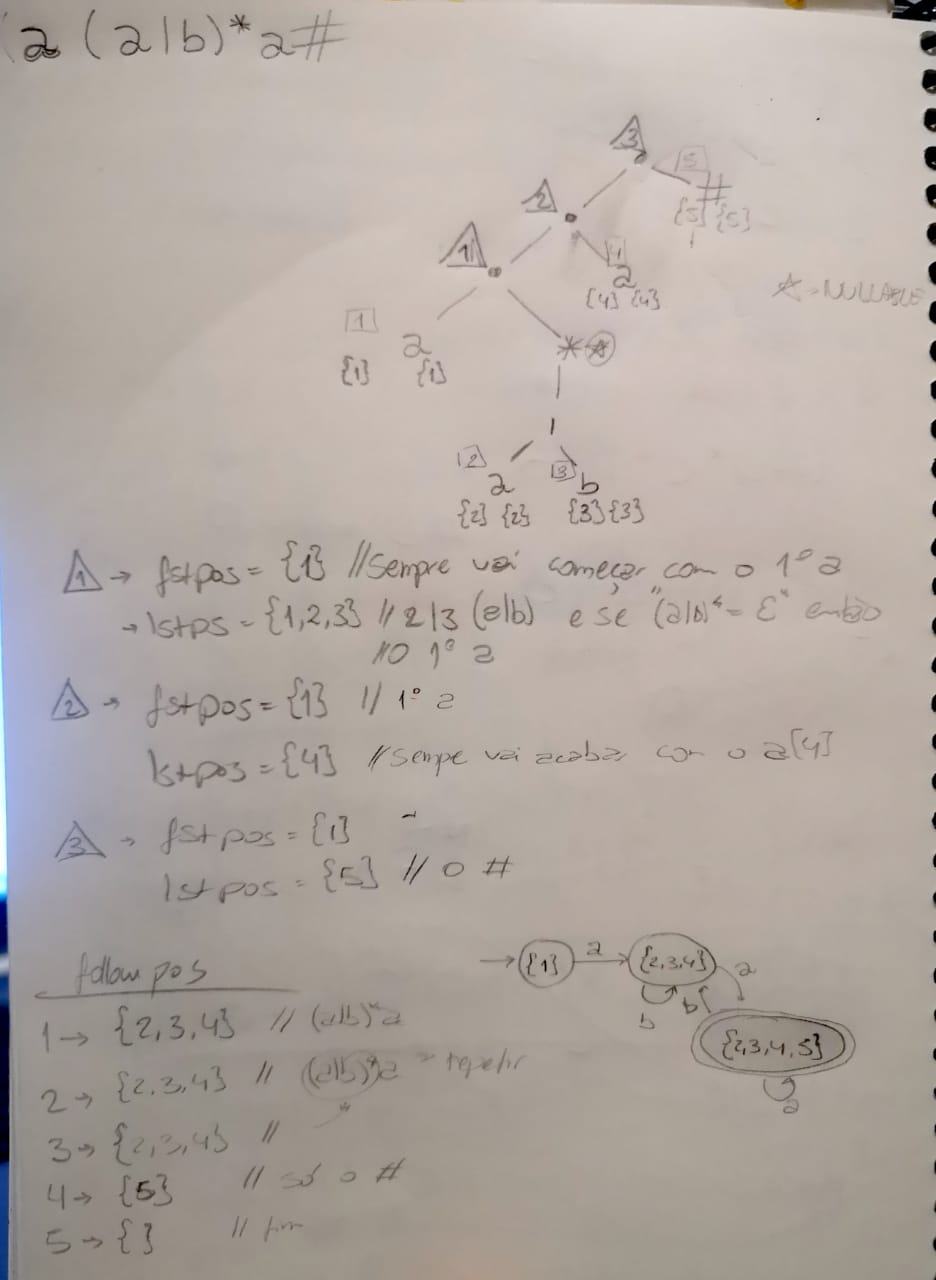 a (a|b)*a#
3
5
2
#
{5} {5}
1
4
a
{4} {4}
☆ - NULLABLE
1
a
{1} {1}
* ☆
|
2
3
a
b
{2} {2}
{3} {3}
1 → fstpos = {1} // Sempre vai começar com o 1º a
→ lstps = {1,2,3} // 2|3 (a|b) e se "(a|b)* = ε" então
// O 1º a
2 → fstpos = {1} // 1º a
lstpos = {4} // Sempe vai acabar com o a[4]
3 → fstpos = {1}
lstpos = {5} // o #
follow pos
1 → {2,3,4} // (a|b)*a
2 → {2,3,4} // (a|b)*a repetir
3 → {2,3,4} //
4 → {5} // só o #
5 → {} // fim
→ {1} a {2,3,4} a
b b
{2,3,4,5}
a